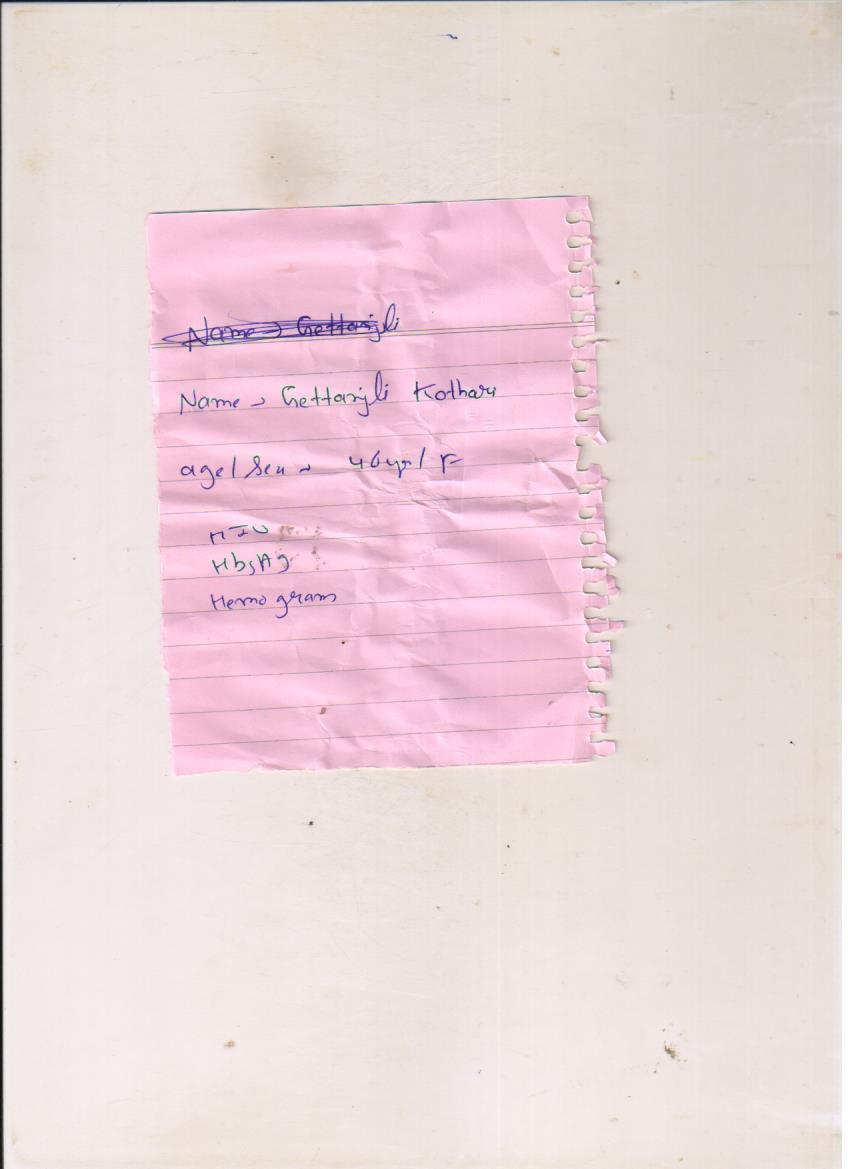 Name → Gettanjli
Name → Gettanjli Kothari
age/Sex → 46yr/F
HIV
HbsAg
Hemogram